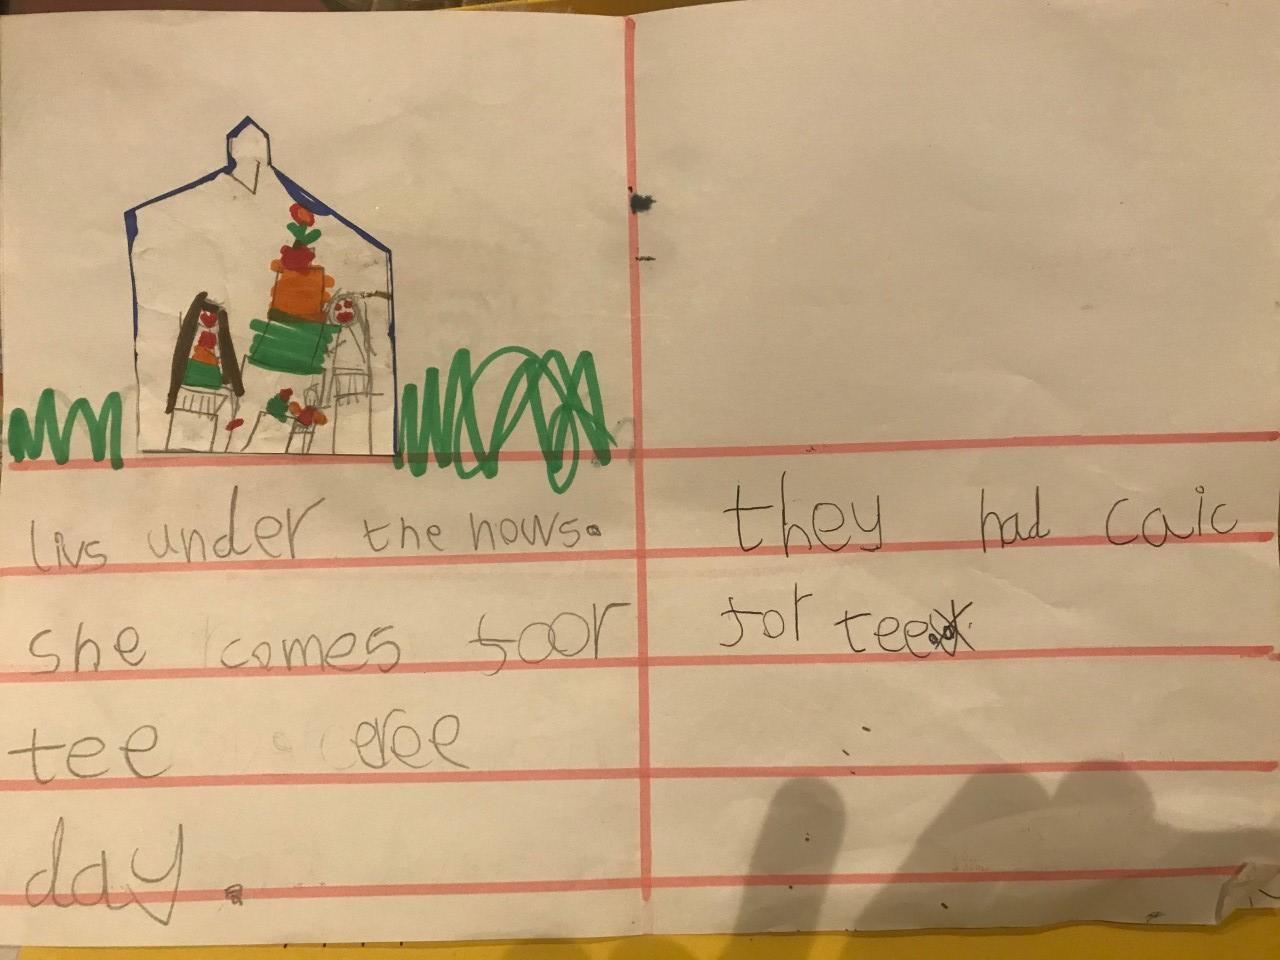 livs under the hows.
she comes foor
tee eree
day.
they had caic
for tee